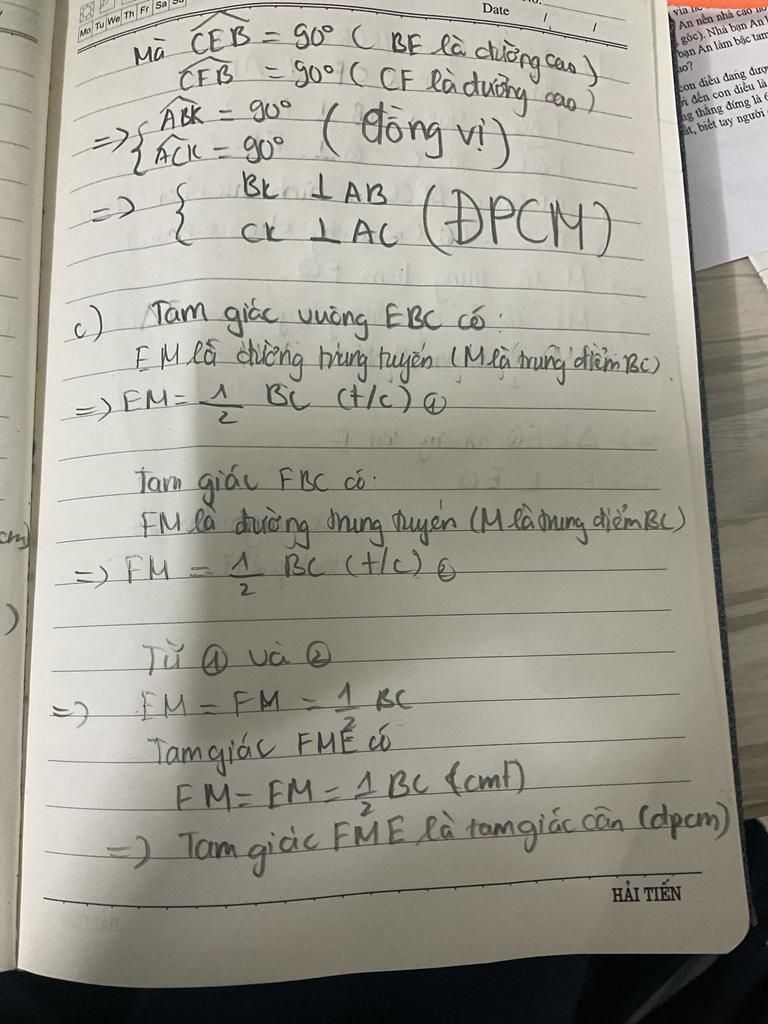 Mo Tu We Th Fr Sa Su
Date
No.
Mà CEB = 90° ( BE là đường cao)
CFB = 90° ( CF là đường cao)
=> { ABK = 90°
ACK = 90° (đồng vị)
=> { BK ⊥ AB
CK ⊥ AC (ĐPCM)
c) Tam giác vuông EBC có:
EM là đường trung tuyến (M là trung điểm BC)
=> EM = 1/2 BC (t/c) ①
Tam giác FBC có:
FM là đường trung tuyến (M là trung điểm BC)
=> FM = 1/2 BC (t/c) ②
Từ ① và ②
=> EM = FM = 1/2 BC
Tam giác FME có
FM = EM = 1/2 BC (cmt)
=> Tam giác FME là tam giác cân (đpcm)
HẢI TIẾN
An nên nhà cao
góc). Nhà bạn An
bạn An làm bậc tam
con diều đang đượ
đến con diều là
thẳng đứng là 6
biết tay người
cm)
)